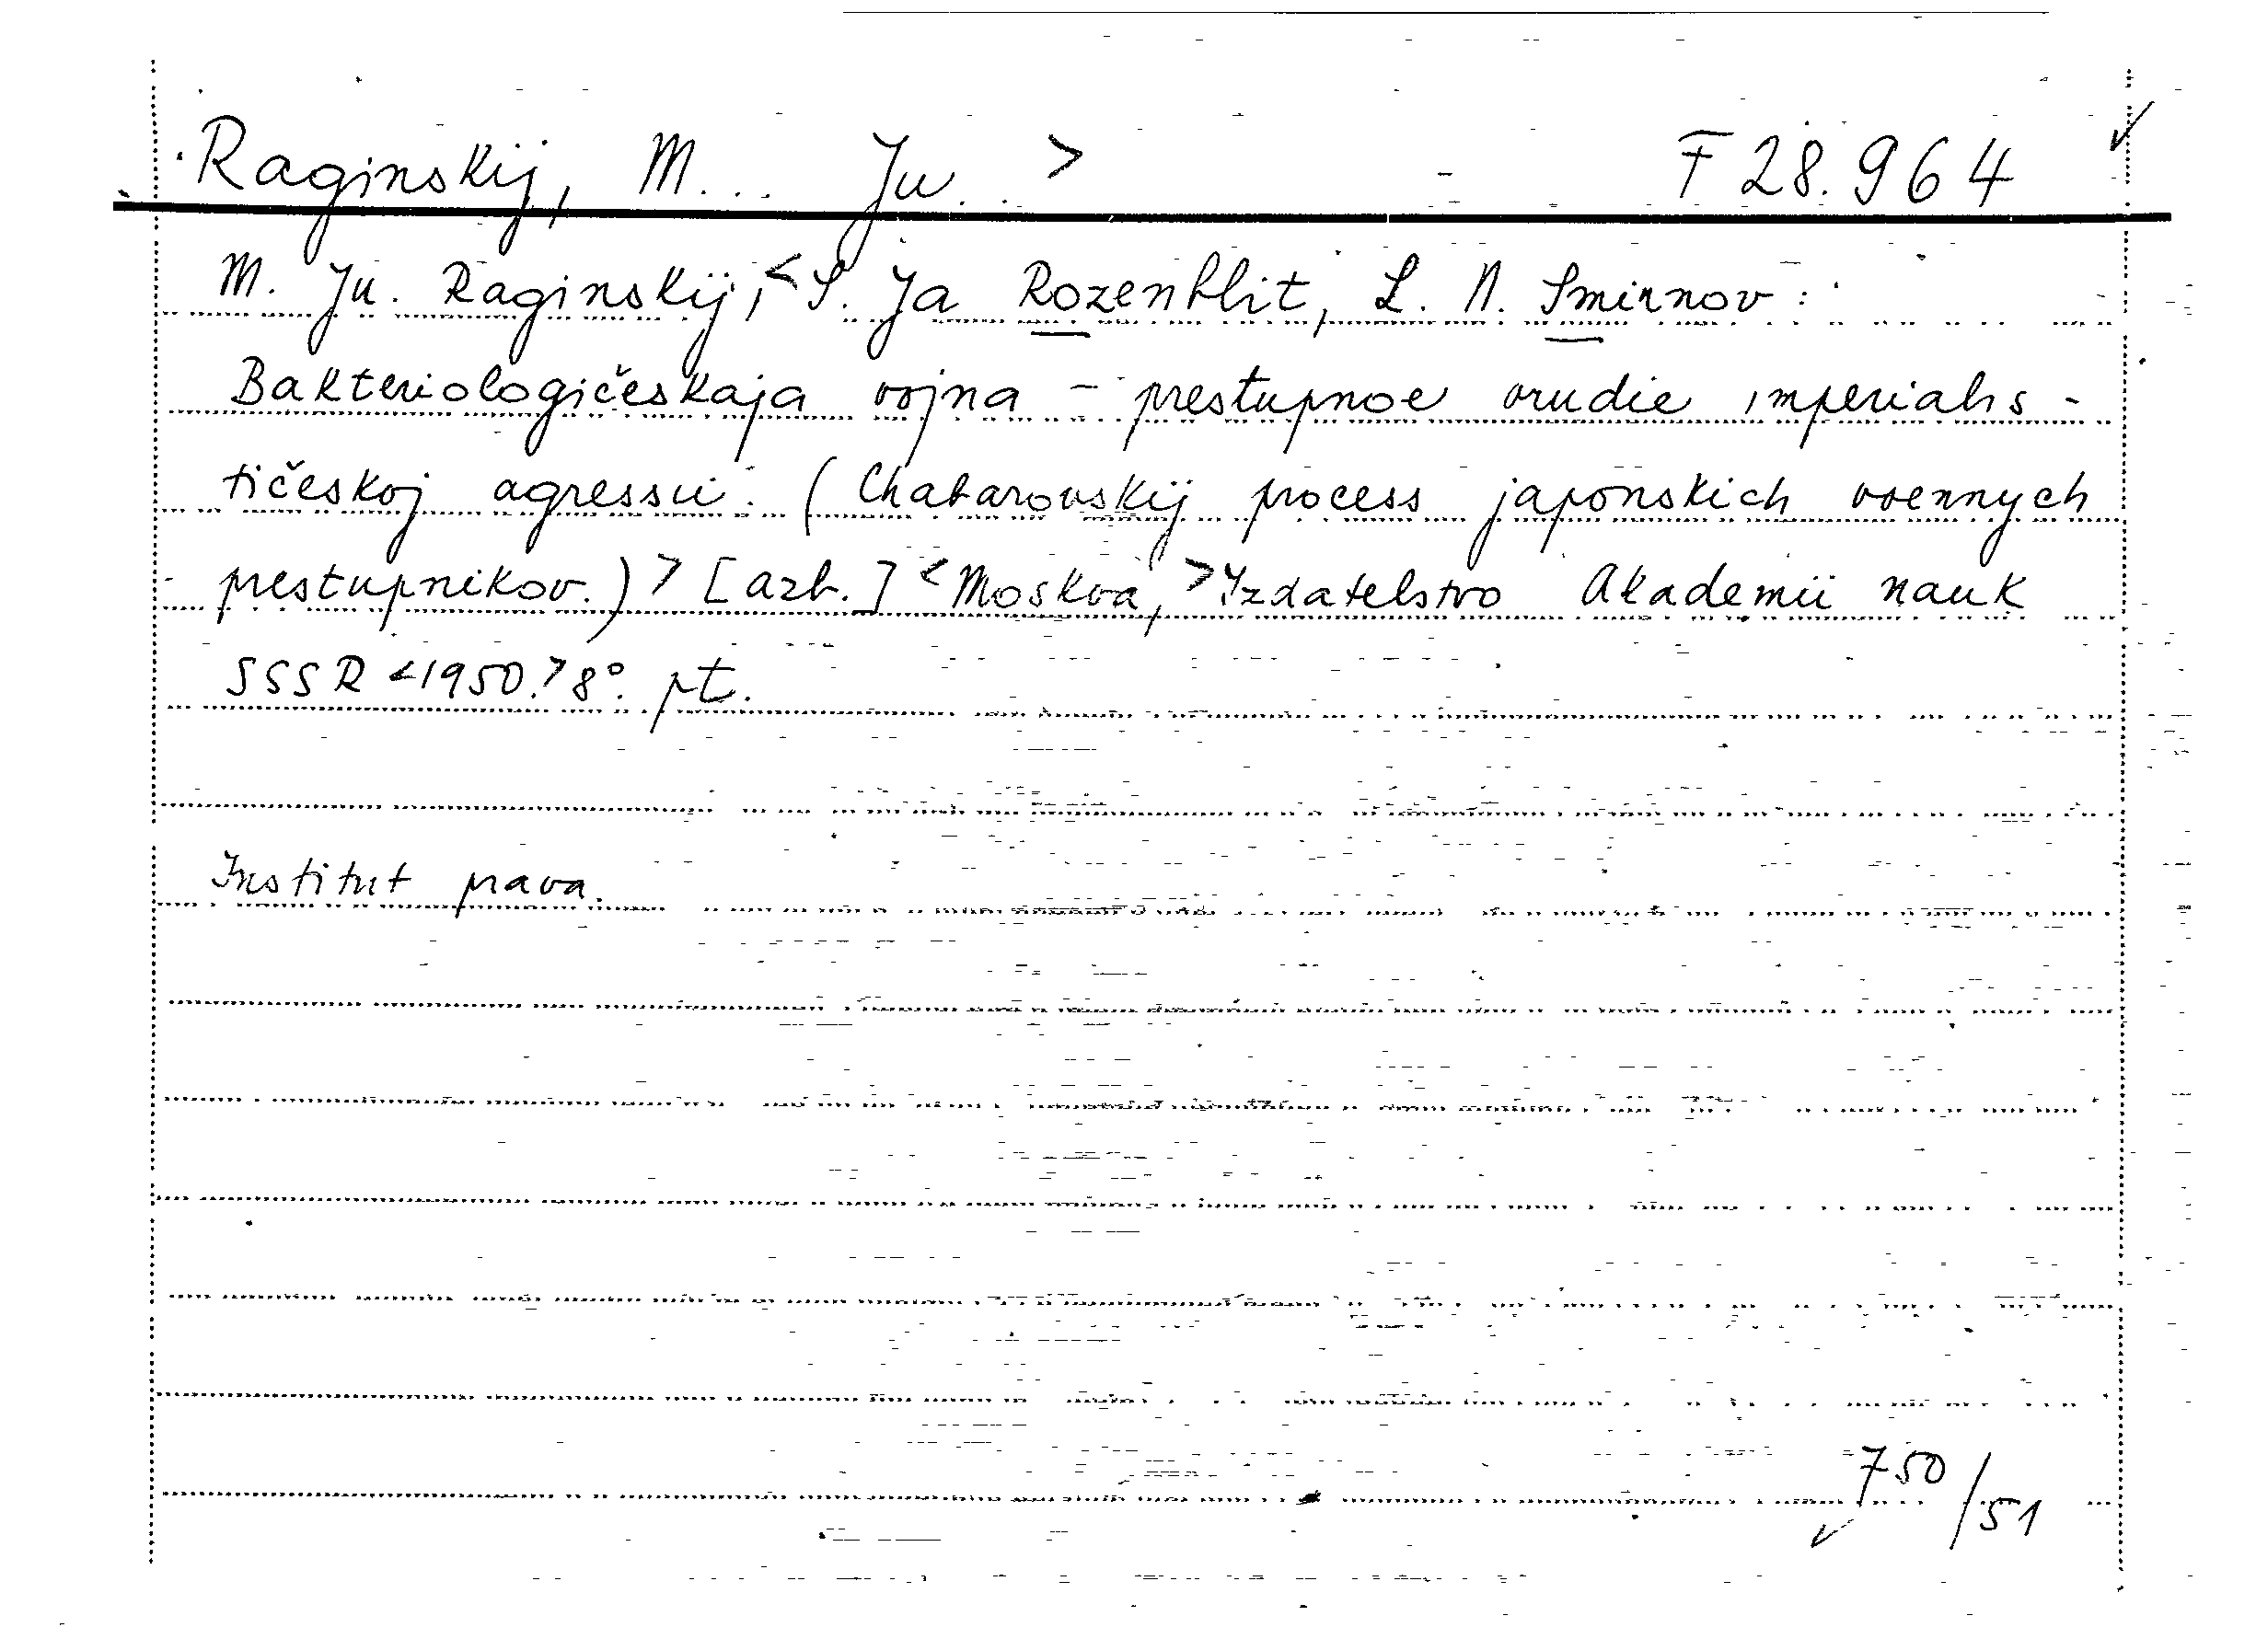 Raginskij, M... Ju.. > F 28.964 ✓
M. Ju. Raginskij, < S. Ja Rozenblit, L. N. Smirnov :
Bakteriologičeskaja vojna - prestupnoe orudie imperialis-
tičeskoj agressii. (Chabarovskij process japonskich voennych
prestupnikov.) > [azb.] < Moskva, > Izdatelstvo Akademii nauk
SSSR < 1950. > 8°. pt.
Institut prava.
750/51 ✓